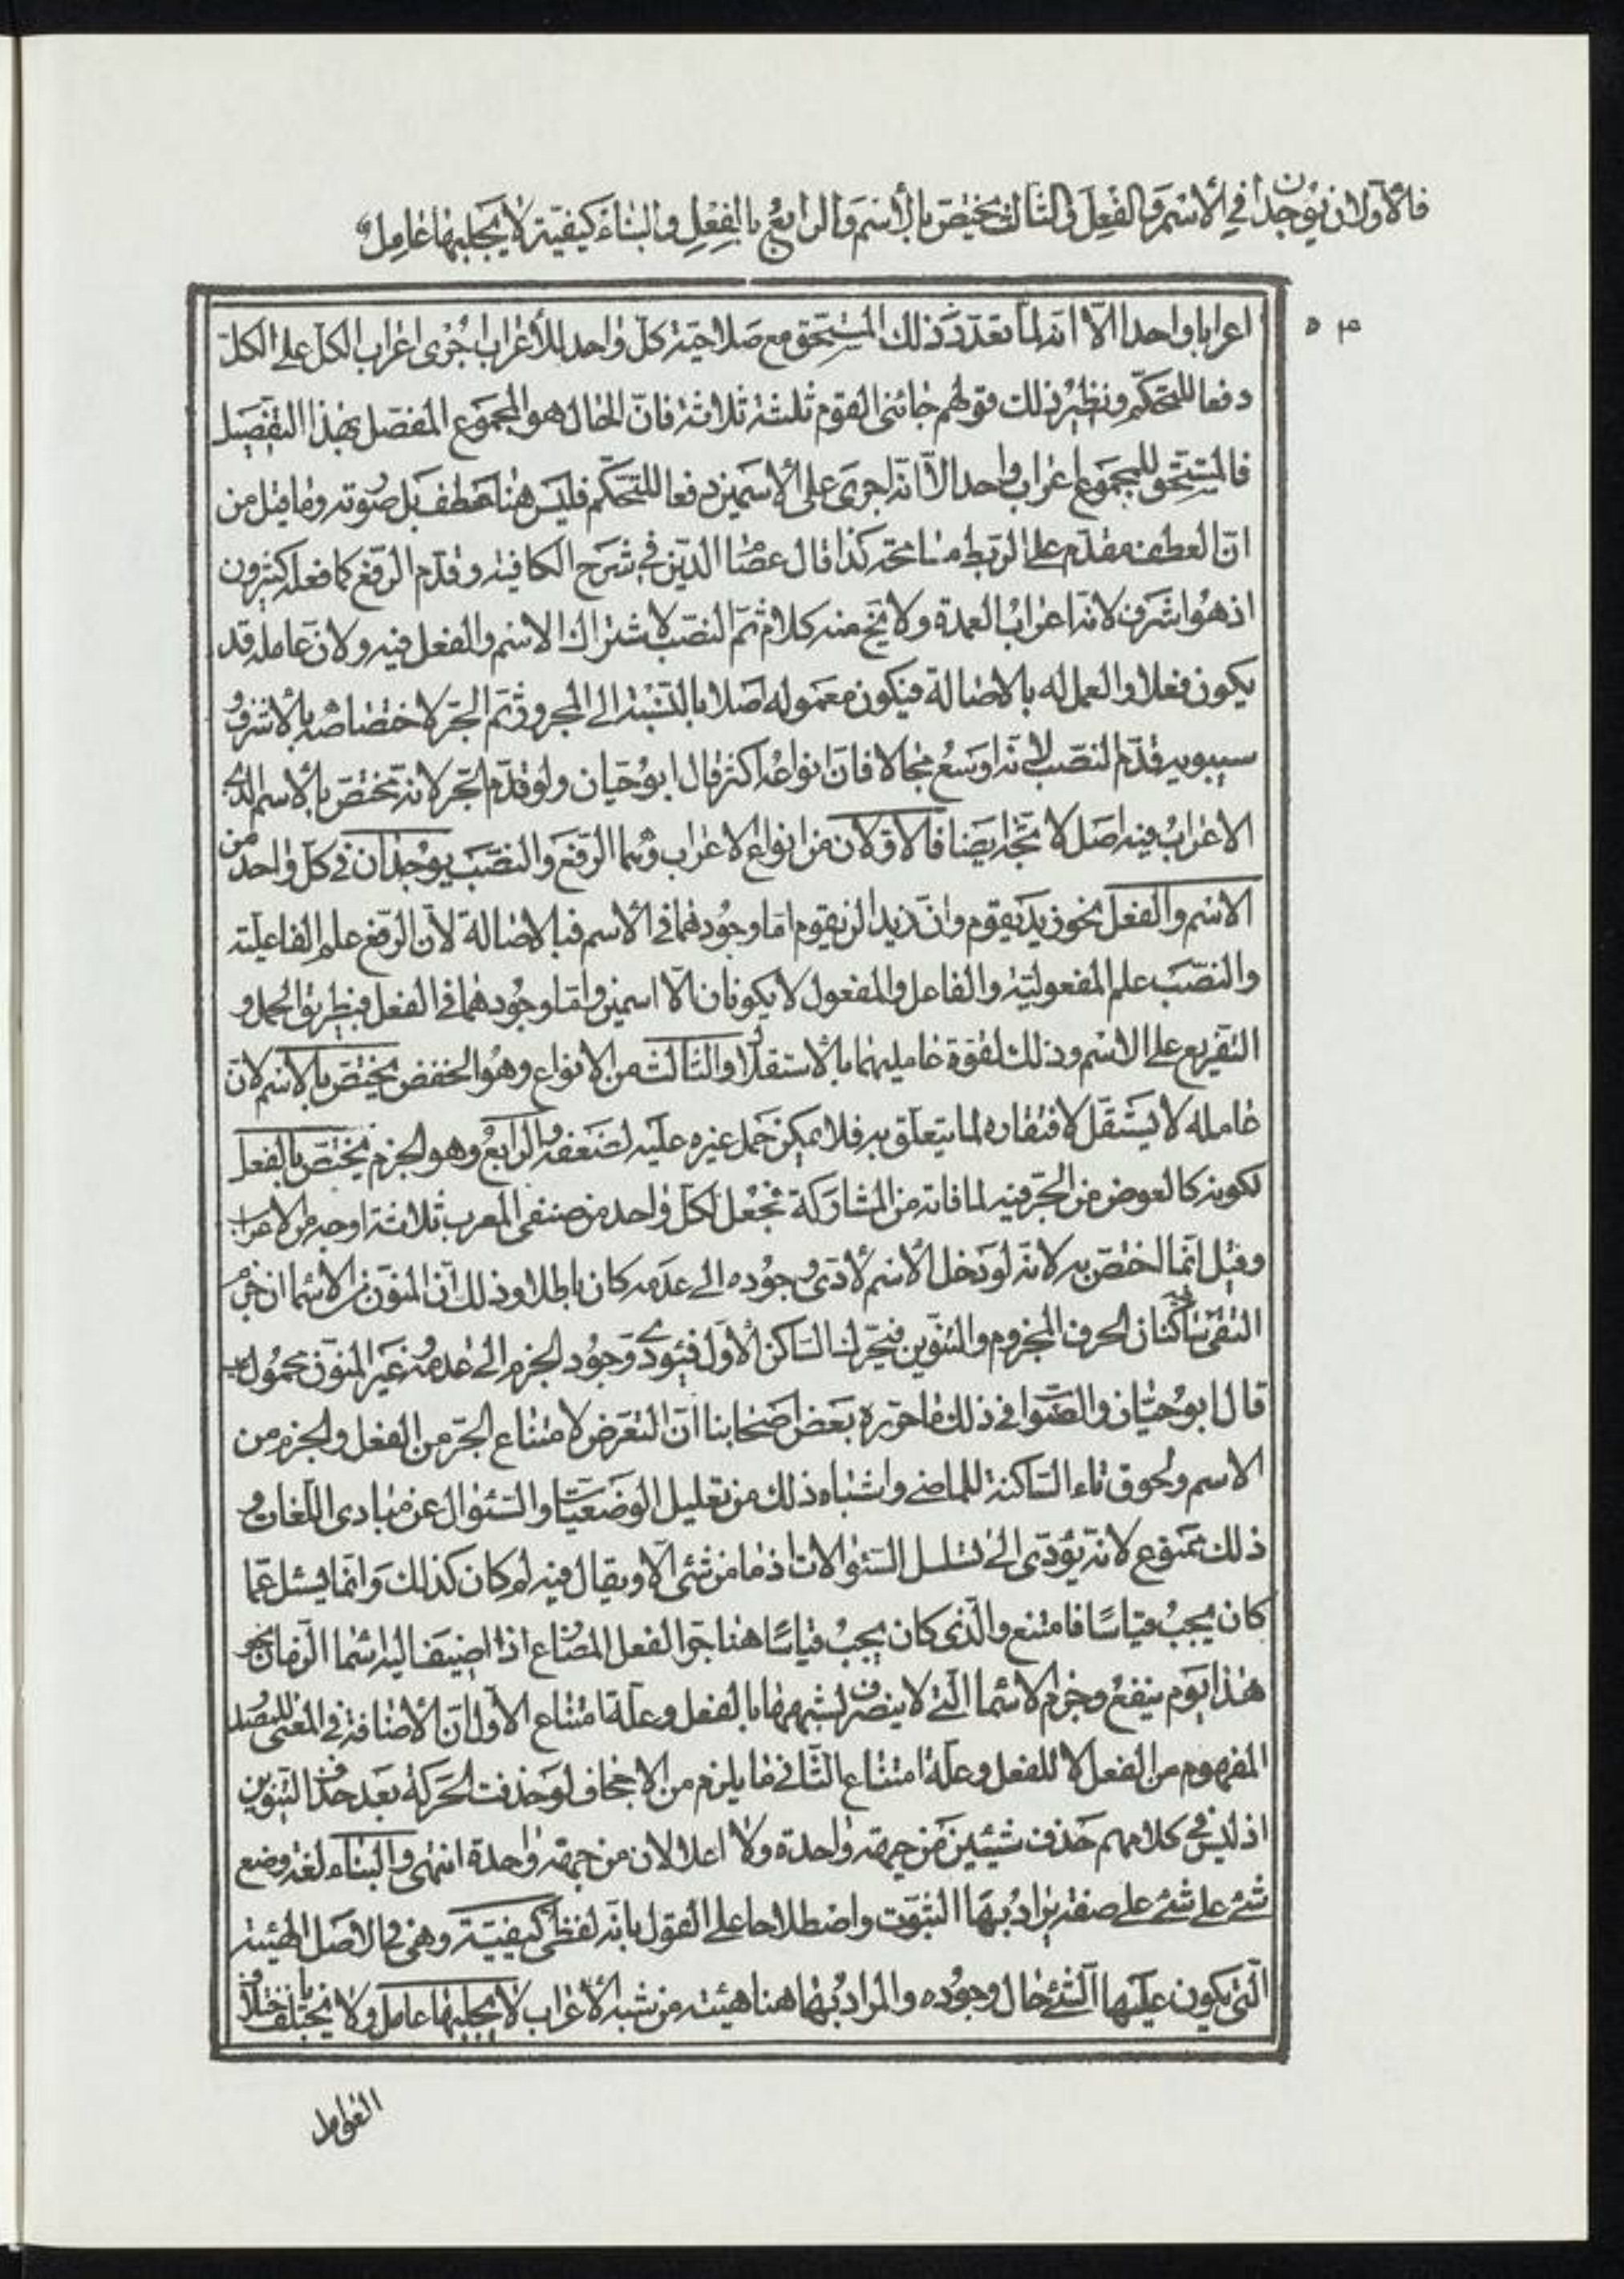 فالأولان يوجدان في الأسم والفعل والثالث يختص بالأسم والرابع بالفعل والبناء كيفية لا يجلبها عامل
اعرابا واحدا الّا انه لما تعدّد ذلك المستحق مع صلاحية كل واحد للأعراب اجرى اعراب الكل على الكل
دفعا للتحكم ونظير ذلك قولهم جائنى القوم ثلثة ثلاثة فانّ الحال هو المجموع المفصل بهذا التفصيل
فالمستحق للمجموع اعراب واحد الّا انه اجرى على الأسمين دفعا للتحكم فليس هنا عطف بل صورته وما قيل من
انّ العطف مقدم على الربط مسامحة كذا قال عصام الدين في شرح الكافية وقدّم الرفع كما فعله كثيرون
اذ هو اشرف لانه اعراب العمدة ولا يخ منه كلام ثم النصب لاشتراك الاسم والفعل فيه ولان عامله قد
يكون فعلا والعمل له بالاصالة فيكون معموله اصلا بالنسبة الى المجرور ثم الجرّ لاختصاصه بالأشرف و
سيبويه قدّم النصب لانه اوسع مجالا فانّ انواعه اكثر قال ابو حيان ولو قدّم الجر لانه تختص بالأسم الذى
الاعراب فيه اصل لاتجه ايضا فالاولان من انواع الاعراب وهما الرفع والنصب يوجدان في كل واحد من
الاسم والفعل نحو زيد يقوم وانّ زيدا لن يقوم امّا وجودهما في الأسم فبالاصالة لأن الرفع علم الفاعلية
والنصب علم المفعولية والفاعل والمفعول لا يكونان الّا اسمين وامّا وجودهما في الفعل فبطريق الحمل و
التفريع على الاسم وذلك لقوة عامليهما بالأستقلال والثالث من الانواع وهو الخفض يختص بالاسم لان
عامله لا يستقل لافتقاره لما يتعلق به فلا يمكن حمل غيره عليه لضعفه والرابع وهو الجزم يختص بالفعل
لكونه كالعوض من الجرّ فيه لما فاته من المشاركة فجعل لكل واحد من صنفى المعرب ثلاثة اوجه من الاعراب
وقيل انّما اختص به لانه لو دخل الأسم لأدى وجوده الى عدمه كان باطلا وذلك انّ المنون من الاسما ان جزم
التقى ساكنان الحرف المجزوم والتنوين فيحرك الساكن الأول فيؤدى وجود الجزم الى عدمه وغير المنون محمول عليه
قال ابو حيان والصواب في ذلك ما حرره بعض اصحابنا انّ التعرض لامتناع الجرّ من الفعل والجزم من
الاسم ولحوق تاء الساكنة للماضى واشباه ذلك من تعليل الوضعيات والسئوال عن مبادى اللغات و
ذلك ممنوع لانه يؤدى الى تسلسل السئوالات اذ ما من شئ الّا ويقال فيه لم كان كذلك وانّما يسئل عمّا
كان يجب قياسًا فامتنع والّذى كان يجب قياسًا هنا جر الفعل المضارع اذا اضيف اليه اسما الزمان نحو
هذا يوم ينفع وجزم الاسما الّتى لا ينصرف لشبهها بالفعل وعلّة امتناع الأول انّ الأضافة في المعنى للمصدر
المفهوم من الفعل لا للفعل وعلّة امتناع الثّانى ما يلزم من الاجحاف لو حذفت الحركة بعد حذف التنوين
اذ ليس في كلامهم حذف شيئين من جهة واحدة ولا اعلالان من جهة واحدة انتهى والبناء لغة وضع
شئ على شئ على صفة يراد بها الثبوت واصطلاحا على القول بانه لفظى كيفيّة وهى في الاصل الهيئة
الّتى يكون عليها الشئ حال وجوده والمراد بها هنا هيئة من شبه الأعراب لا يجلبها عامل ولا يختلف باختلاف
العوامل